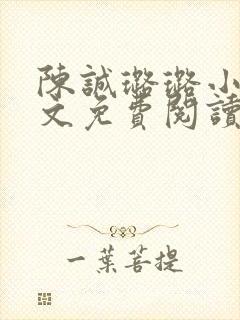 陳誠璐璐小
文免費閱讀
一葉菩提